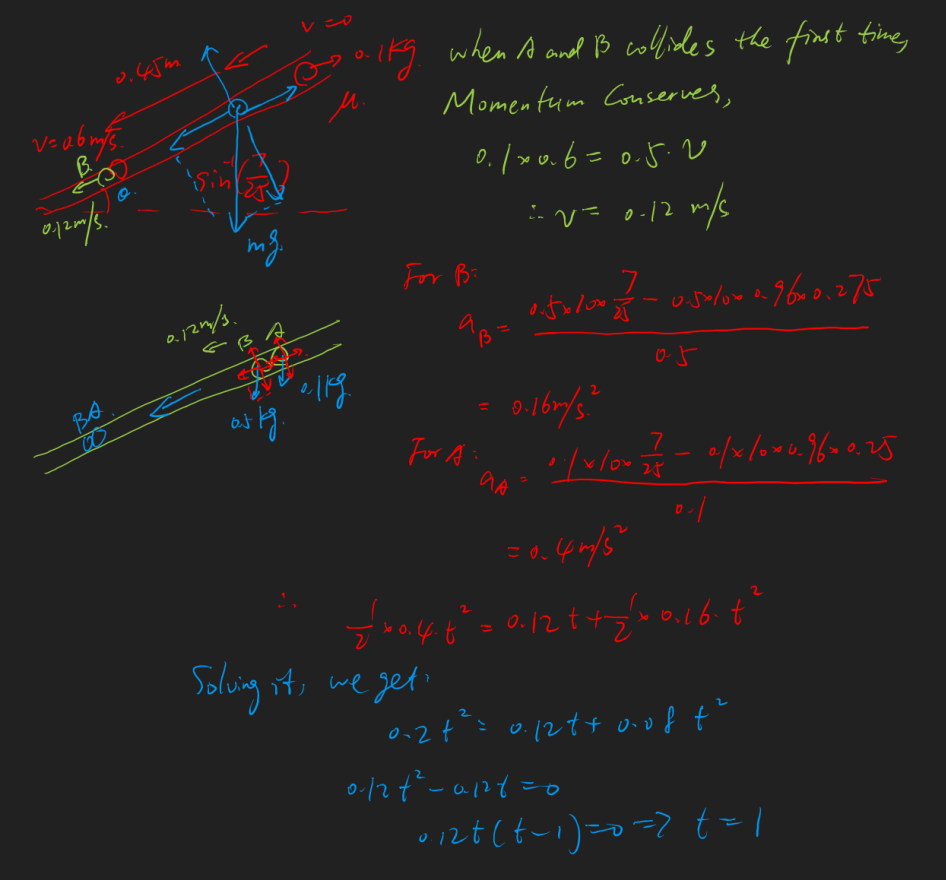 v=0
0.45m
0.1kg.
μ.
v=0.6m/s.
B.
θ.
sin⁻¹(7/25)
0.12m/s.
mg.
when A and B collides the first time,
Momentum Conserves,
0.1×0.6 = 0.5·v
∴ v = 0.12 m/s
For B:
a_B = (0.5×10×7/25 − 0.5×10×0.96×0.275)/0.5
= 0.16m/s².
For A:
a_A = (0.1×10×7/25 − 0.1×10×0.96×0.25)/0.1
= 0.4m/s²
0.12m/s.
B A
0.1kg.
0.5kg.
B A.
∴ 1/2×0.4·t² = 0.12t+1/2×0.16·t²
Solving it, we get,
0.2t² = 0.12t+0.08t²
0.12t²−0.12t=0
0.12t(t−1)=0 => t=1